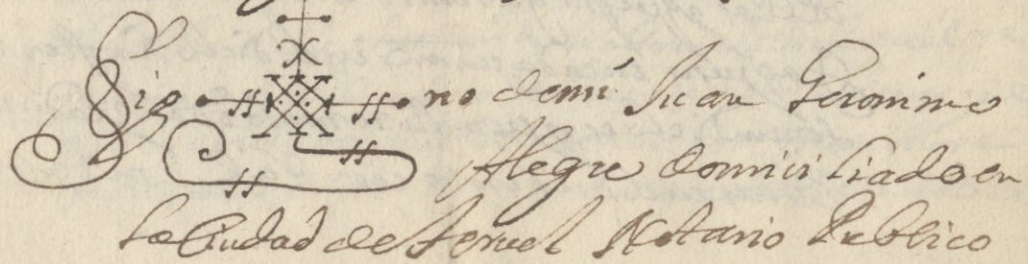 Sig no de mi Juan Geronimo
Alegre domiciliado en
la Ciudad de Teruel Notario Publico